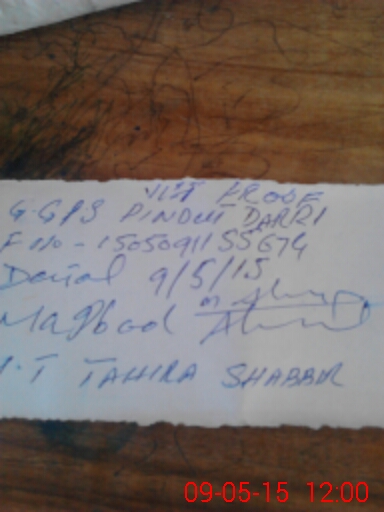 VISIT PROOF
G.GPS PINDORI DARRI
F no - 150509115 5674
Dated 9/5/15
Maqbool
TAHIRA SHABBIR
09-05-15 12:00